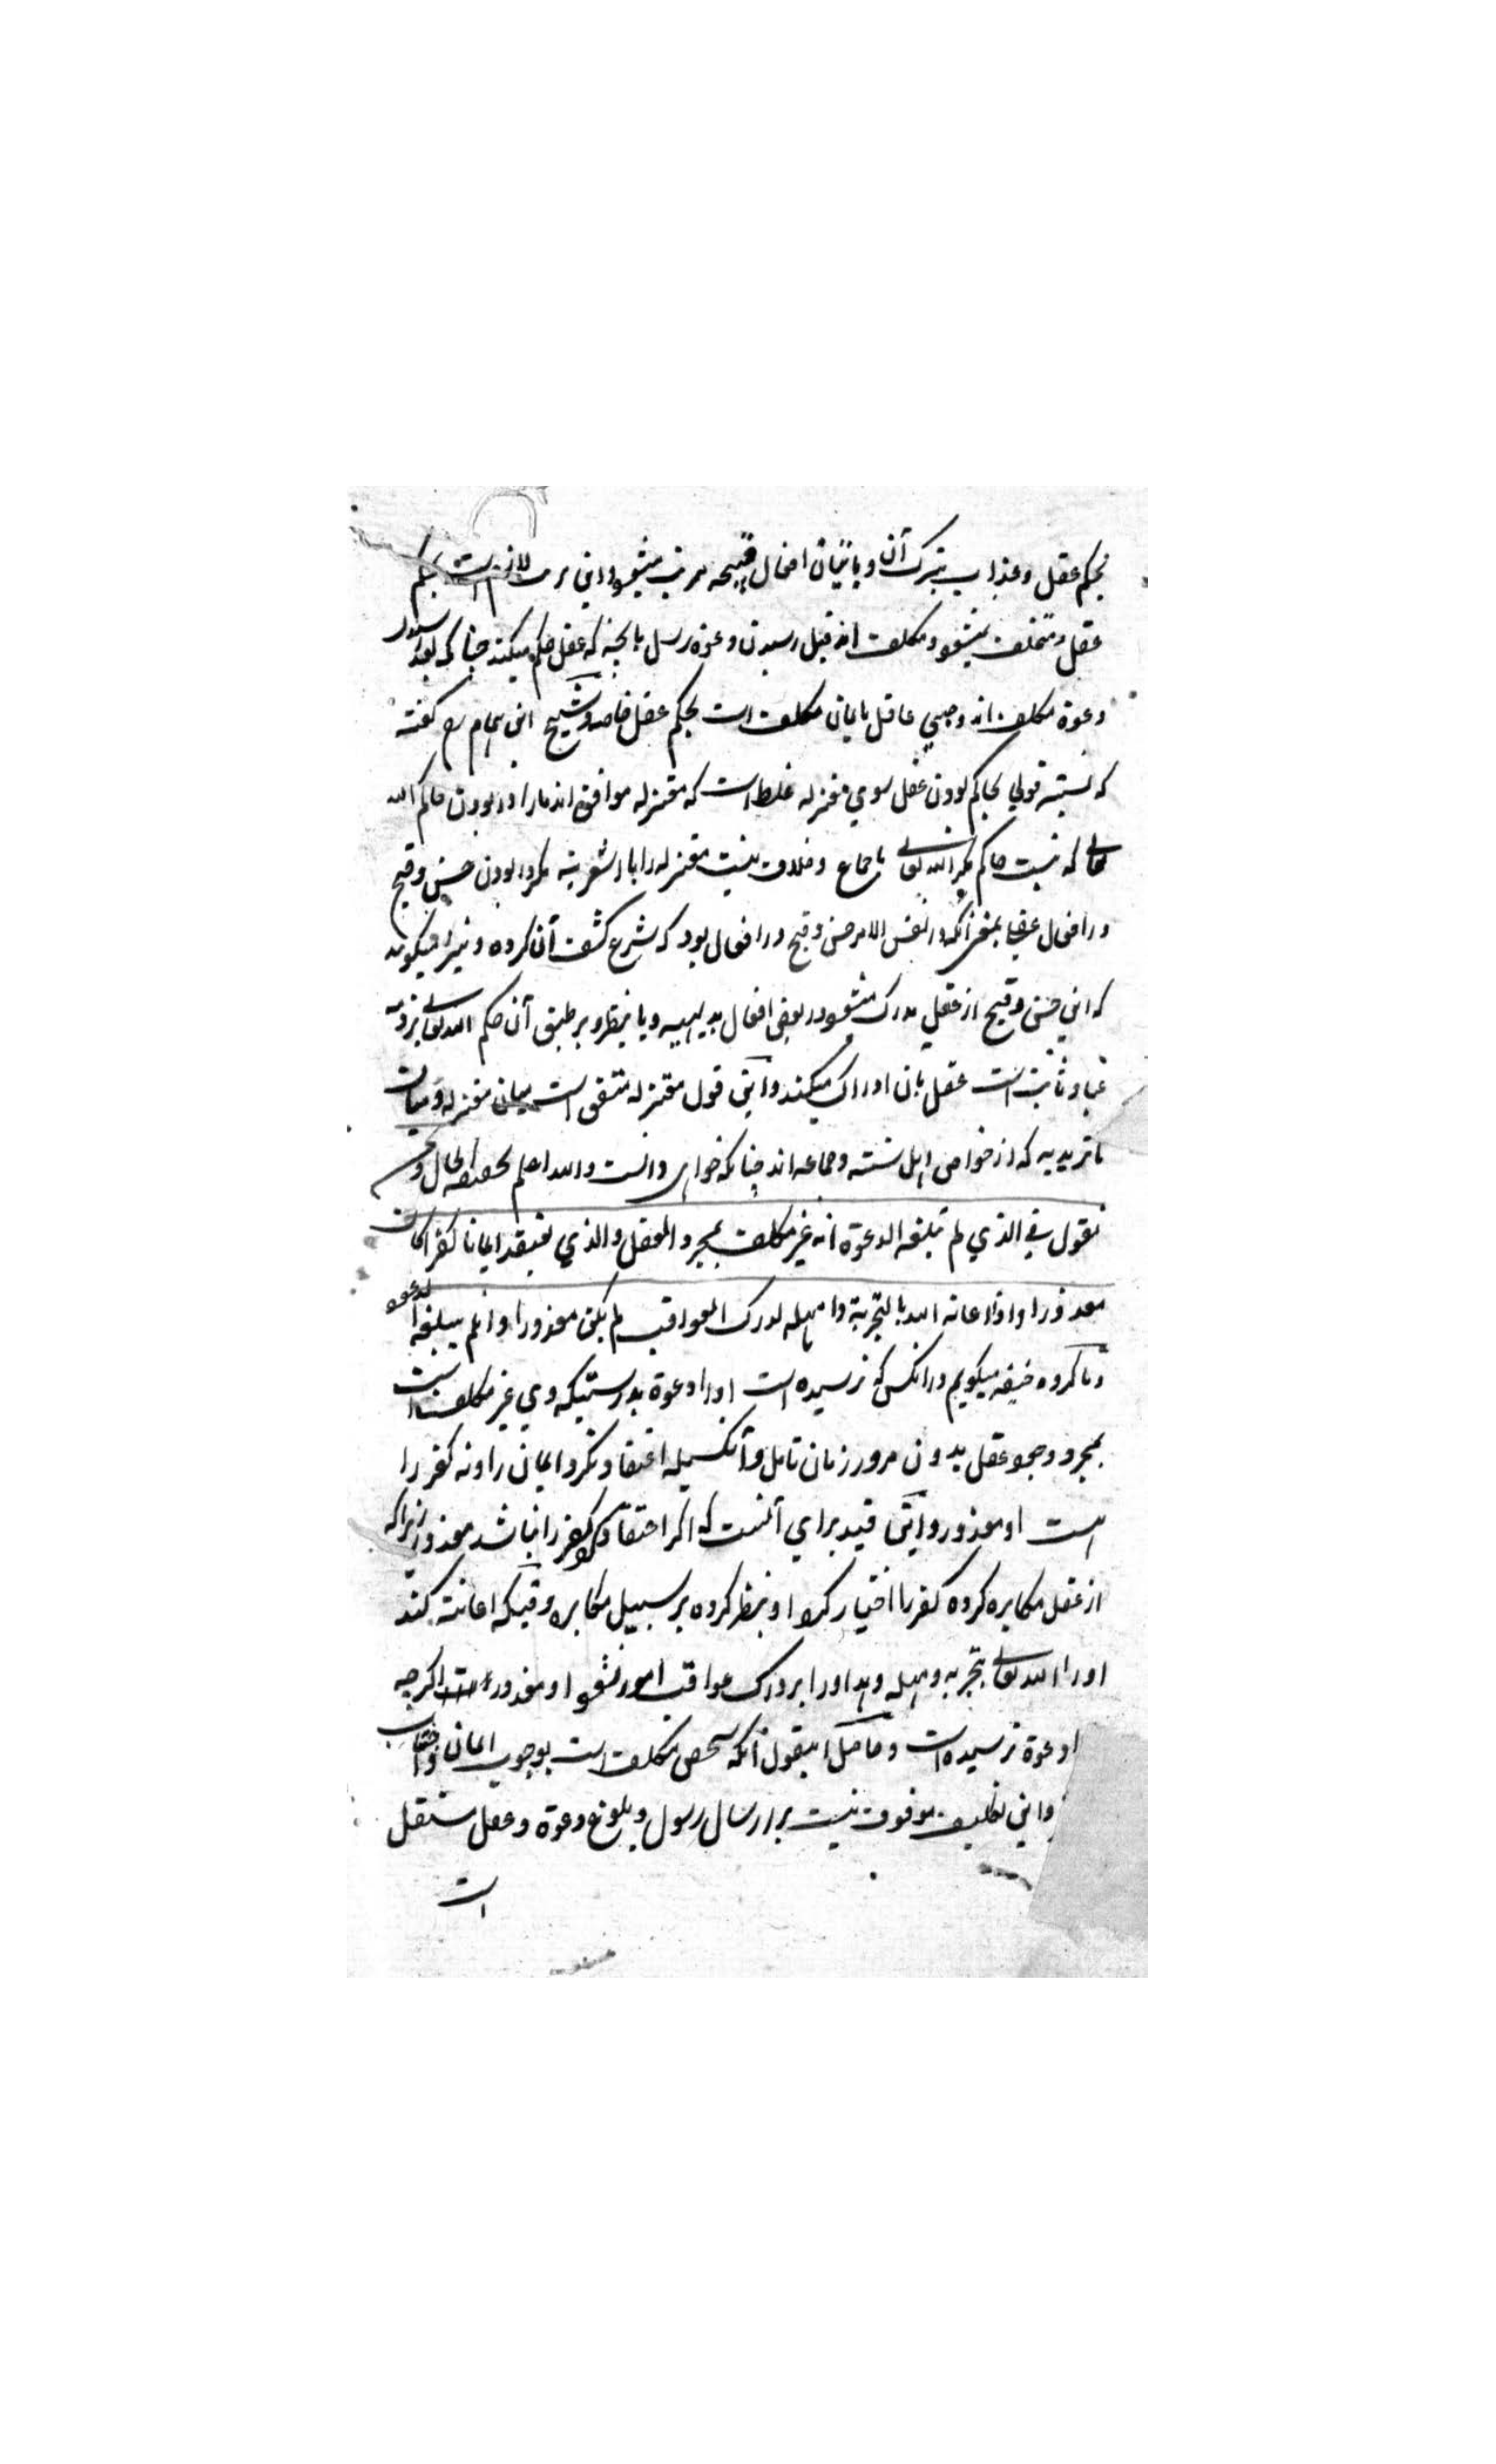 بحکم عقل و عذاب بترک آن و باتیان افعال قبیحه مرتب میشود و این ترتب لازم است بحکم
عقل و متخلف نمیشود و مکلف اند قبل رسیدن دعوة رسل بانچه که عقل حکم میکند چنانکه بعد رسیدن
دعوة مکلف اند و صبی عاقل بایمان مکلف است بحکم عقل خاصه و شیخ ابن همام رح گفته
که نسبته قولی بحاکم بودن عقل سوی معتزله غلط است که معتزله موافق اند مارا در بودن حاکم الله
تعالی که نیست حاکم مگر الله تعالی باجماع و خلاف نیست معتزله را با اشعریه مگر در بودن حسن و قبح
در افعال عقلی بمعنی آنکه در نفس الامر حسن و قبح در افعال بود که شرع کشف آن کرده و نیز میگویند
که این حسن و قبح از عقل مدرک میشود در بعض افعال بدیهیه و یا بنظر و بر طبق آن حکم الله تعالی بر ذمه
عباد ثابت است عقل بان ادراک میکند و این قول معتزله متفق است میان معتزله و میان
ماتریدیه که از خواص اهل سنته و جماعه اند چنانکه خواهی دانست والله اعلم بحقیقه الحال و نحن
نقول فی الذی لم تبلغه الدعوة انه غیر مکلف بمجرد العقل و الذی لم یعتقد ایمانا و لا کفرا کان
معذورا و اذا اعانه الله بالتجربة و امهله لدرک العواقب لم یکن معذورا و ان لم یبلغه الدعوة
و ما گروه حنیفه میگویم در انکس که نرسیده است او را دعوة بدرستیکه وی غیر مکلف است
بمجرد وجود عقل بدون مرور زمان تامل و آنکسیکه اعتقاد نکرد ایمان را و نه کفر را
است او معذور و این قید برای آنست که اگر اعتقاد کرد کفر را نباشد معذور زیرا که
از عقل مکابره کرده کفر را اختیار کرد او بنظر کرده بر سبیل مکابره وقتیکه اعانت کند
او را الله تعالی بتجربه و مهله دهد او را بر درک عواقب امور نشود او معذور اگرچه
او دعوة نرسیده است و حاصل این قول آنکه شخص مکلف است بوجوب ایمان و اجتناب
و این تکلیف موقوف نیست بر ارسال رسول و بلوغ دعوة و عقل مستقل
است